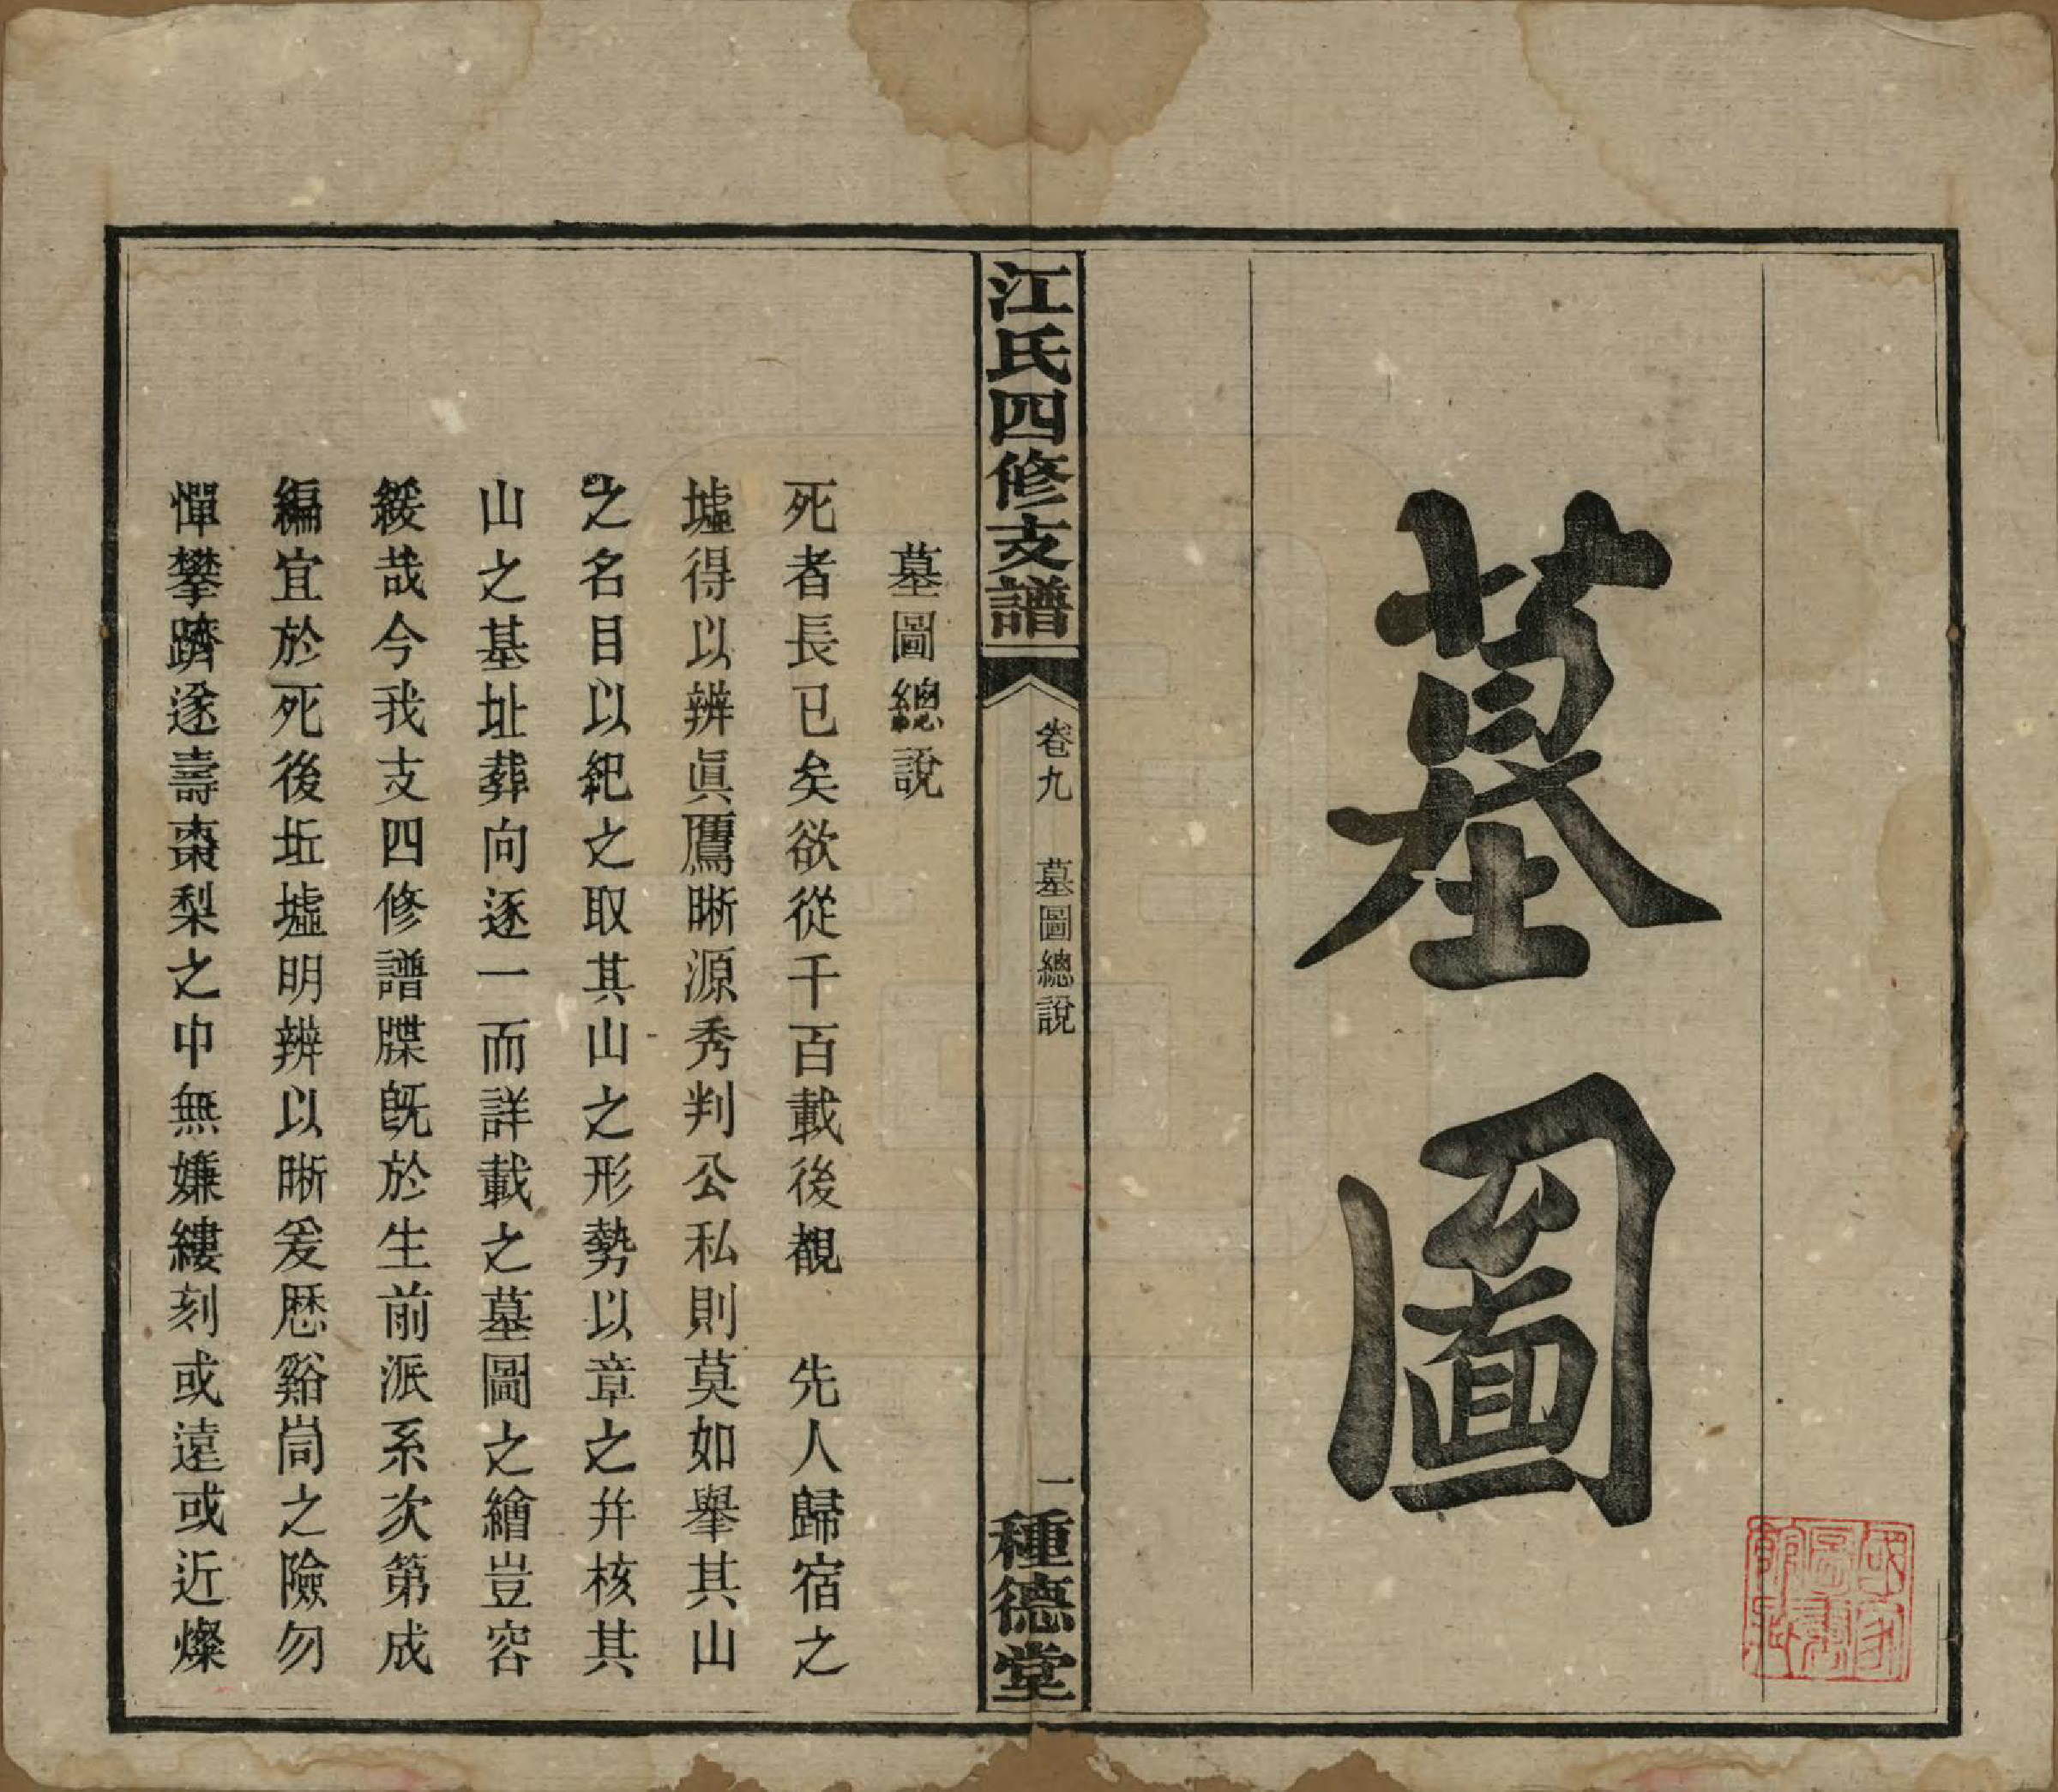 墓圖
江氏四修支譜
卷九
墓圖總說
一
種德堂
墓圖總說
死者長已矣欲從千百載後覩　先人歸宿之
墟得以辨眞鷹晰源秀判公私則莫如舉其山
之名目以紀之取其山之形勢以章之幷核其
山之基址葬向逐一而詳載之墓圖之繪豈容
緩哉今我支四修譜牒旣於生前派系次第成
編宜於死後坵墟明辨以晰爰歷谿峝之險勿
憚攀躋遂壽棗梨之中無嫌縷刻或遠或近燦
國家圖書館藏